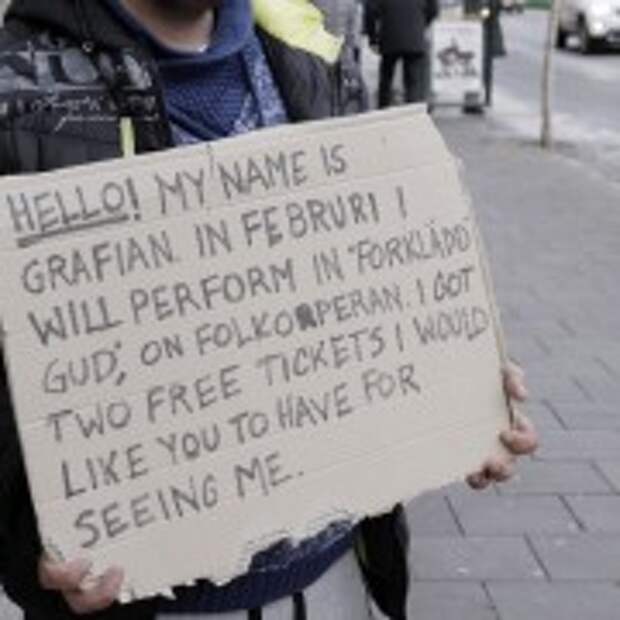 HELLO! MY NAME IS
GRAFIAN. IN FEBRURI I
WILL PERFORM IN "FORKLÄDD
GUD", ON FOLKOPERAN. I GOT
TWO FREE TICKETS I WOULD
LIKE YOU TO HAVE FOR
SEEING ME.